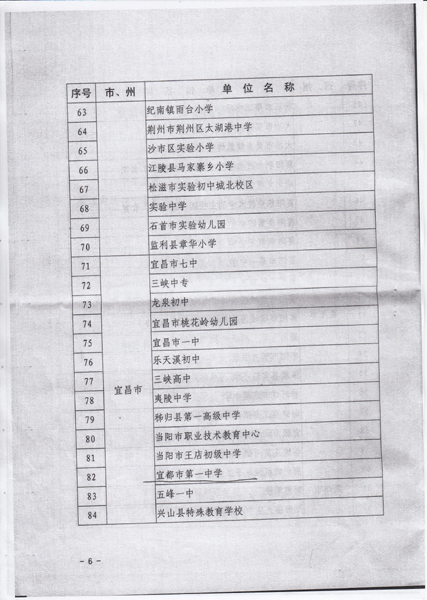 序号 市、州 单位名称
63 纪南镇雨台小学
64 荆州市荆州区太湖港中学
65 沙市区实验小学
66 江陵县马家寨乡小学
67 松滋市实验初中城北校区
68 实验中学
69 石首市实验幼儿园
70 监利县章华小学
71 宜昌市七中
72 三峡中专
73 龙泉初中
74 宜昌市桃花岭幼儿园
75 宜昌市一中
76 乐天溪初中
77 宜昌市 三峡高中
78 夷陵中学
79 秭归县第一高级中学
80 当阳市职业技术教育中心
81 当阳市王店初级中学
82 宜都市第一中学
83 五峰一中
84 兴山县特殊教育学校
- 6 -